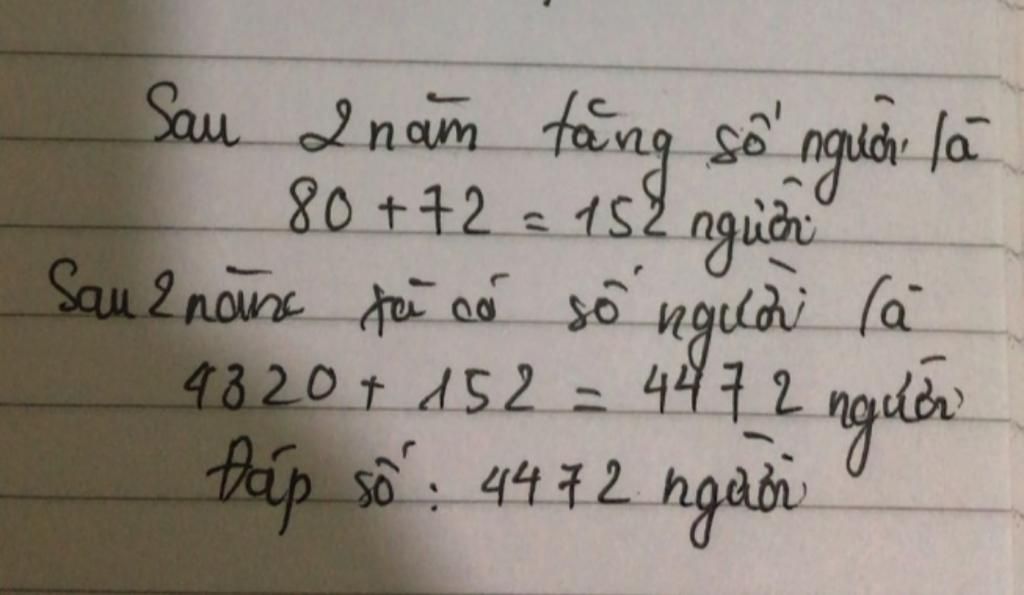 Sau 2 năm tăng số người là
80 + 72 = 152 người
Sau 2 năm xã có số người là
4320 + 152 = 4472 người
Đáp số : 4472 người